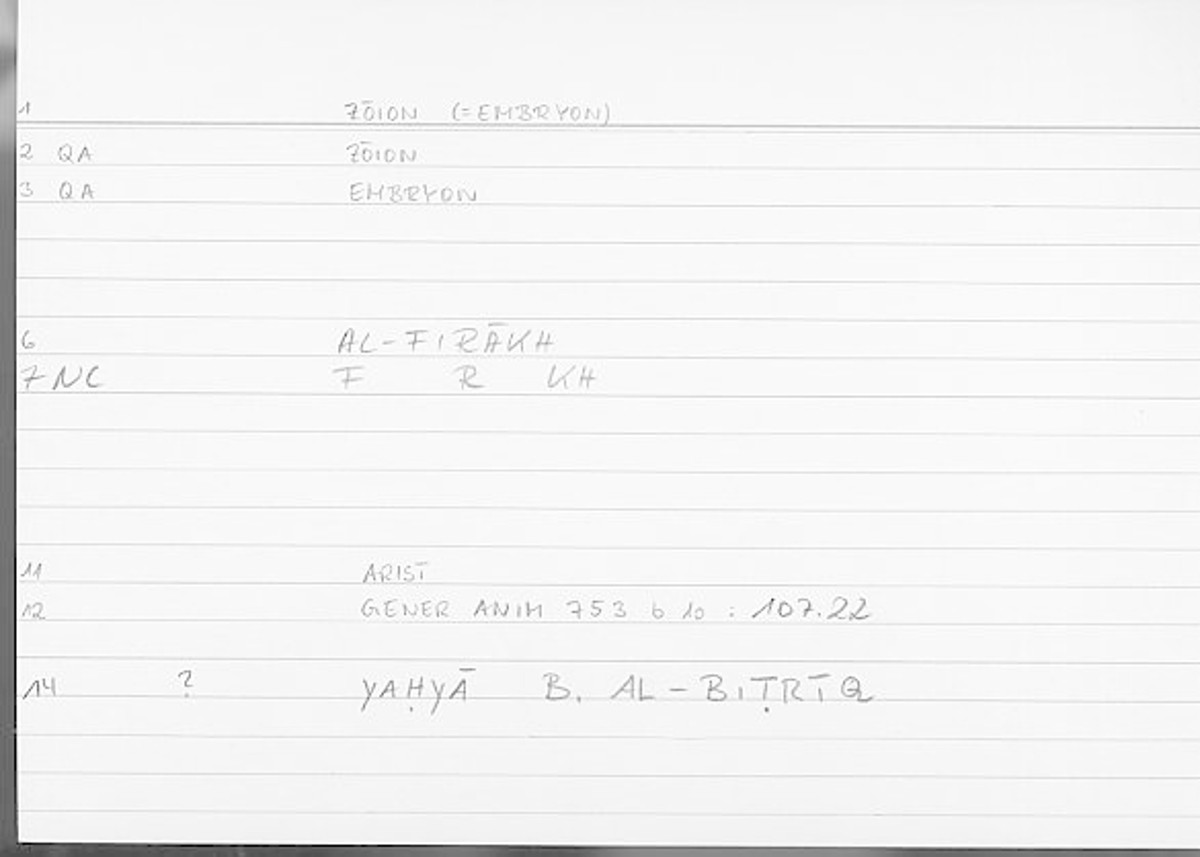 1 ZŌION (=EMBRYON)
2 QA ZŌION
3 QA EMBRYON
6 AL-FIRĀKH
7 NC F R KH
11 ARIST
12 GENER ANIM 753 b 10 : 107.22
14 ? YAḤYĀ B. AL-BIṬRĪQ